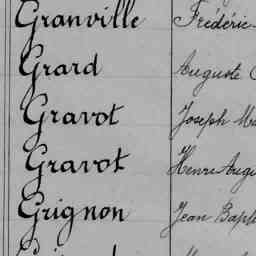 Granville Frédéric
Grard Auguste
Gravot Joseph
Gravot Henri
Grignon Jean